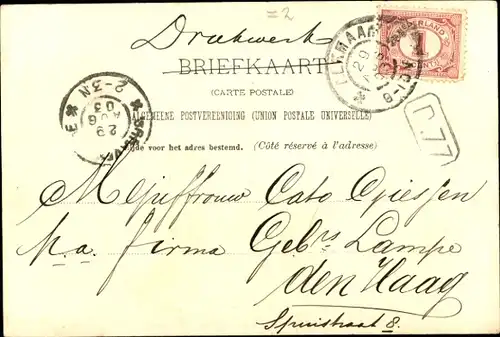 =2
Drukwerk
BRIEFKAART
(CARTE POSTALE)
ALGEMEENE POSTVEREENIGING (UNION POSTALE UNIVERSELLE)
Zijde voor het adres bestemd. (Côté réservé à l'adresse)
Mejuffrouw Cato Giessen
p.a. firma Gebrs Lampe
den Haag
Spuistraat 8.
ALKMAAR
29
NEDERLAND
1
2-3N
29
AUG
03
C. 77